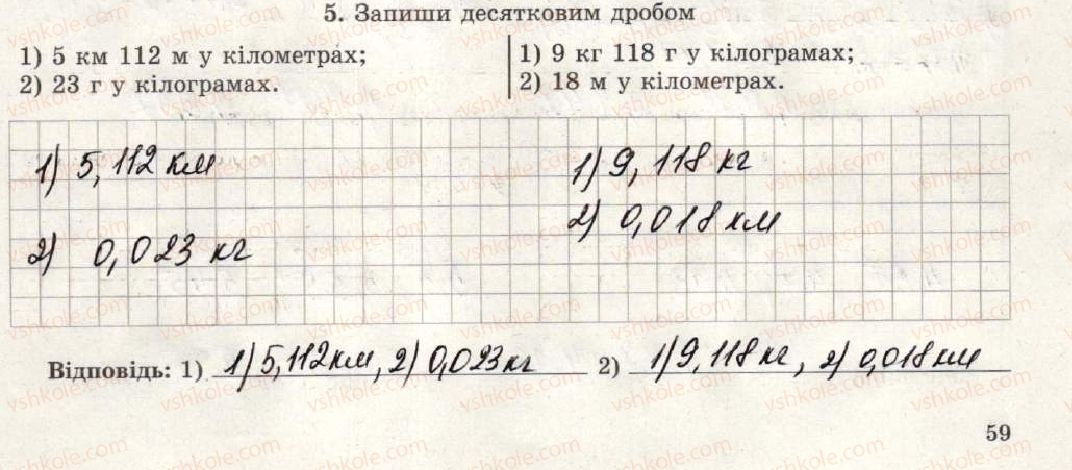 5. Запиши десятковим дробом
1) 5 км 112 м у кілометрах;
2) 23 г у кілограмах.
1) 9 кг 118 г у кілограмах;
2) 18 м у кілометрах.
1) 5,112 км
2) 0,023 кг
1) 9,118 кг
2) 0,018 км
Відповідь: 1) 1) 5,112 км, 2) 0,023 кг 2) 1) 9,118 кг, 2) 0,018 км
59